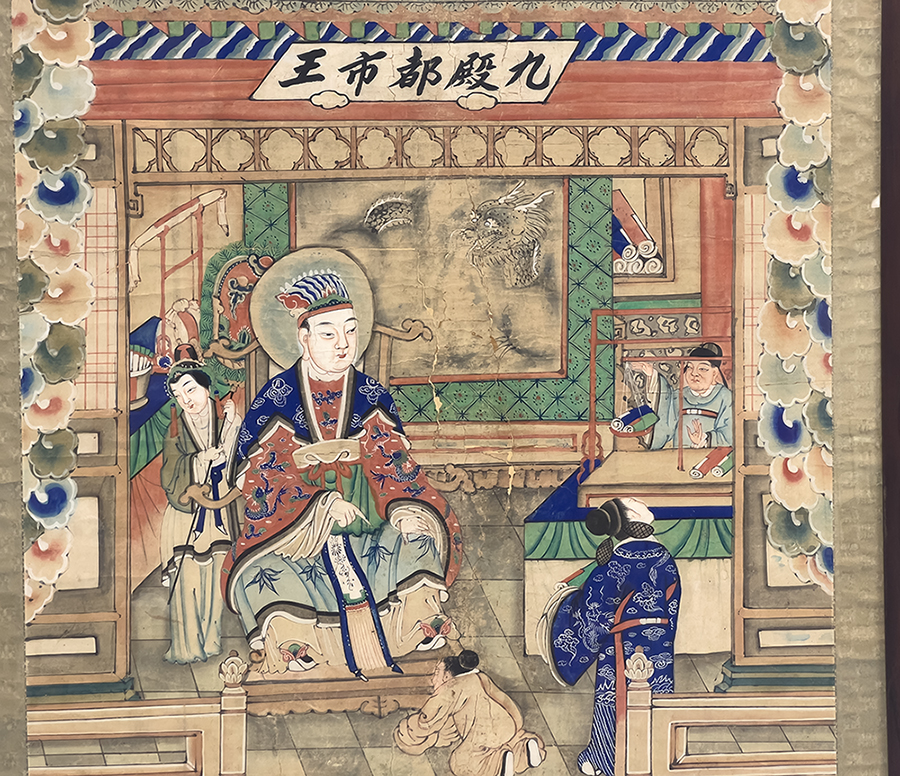 九殿都市王